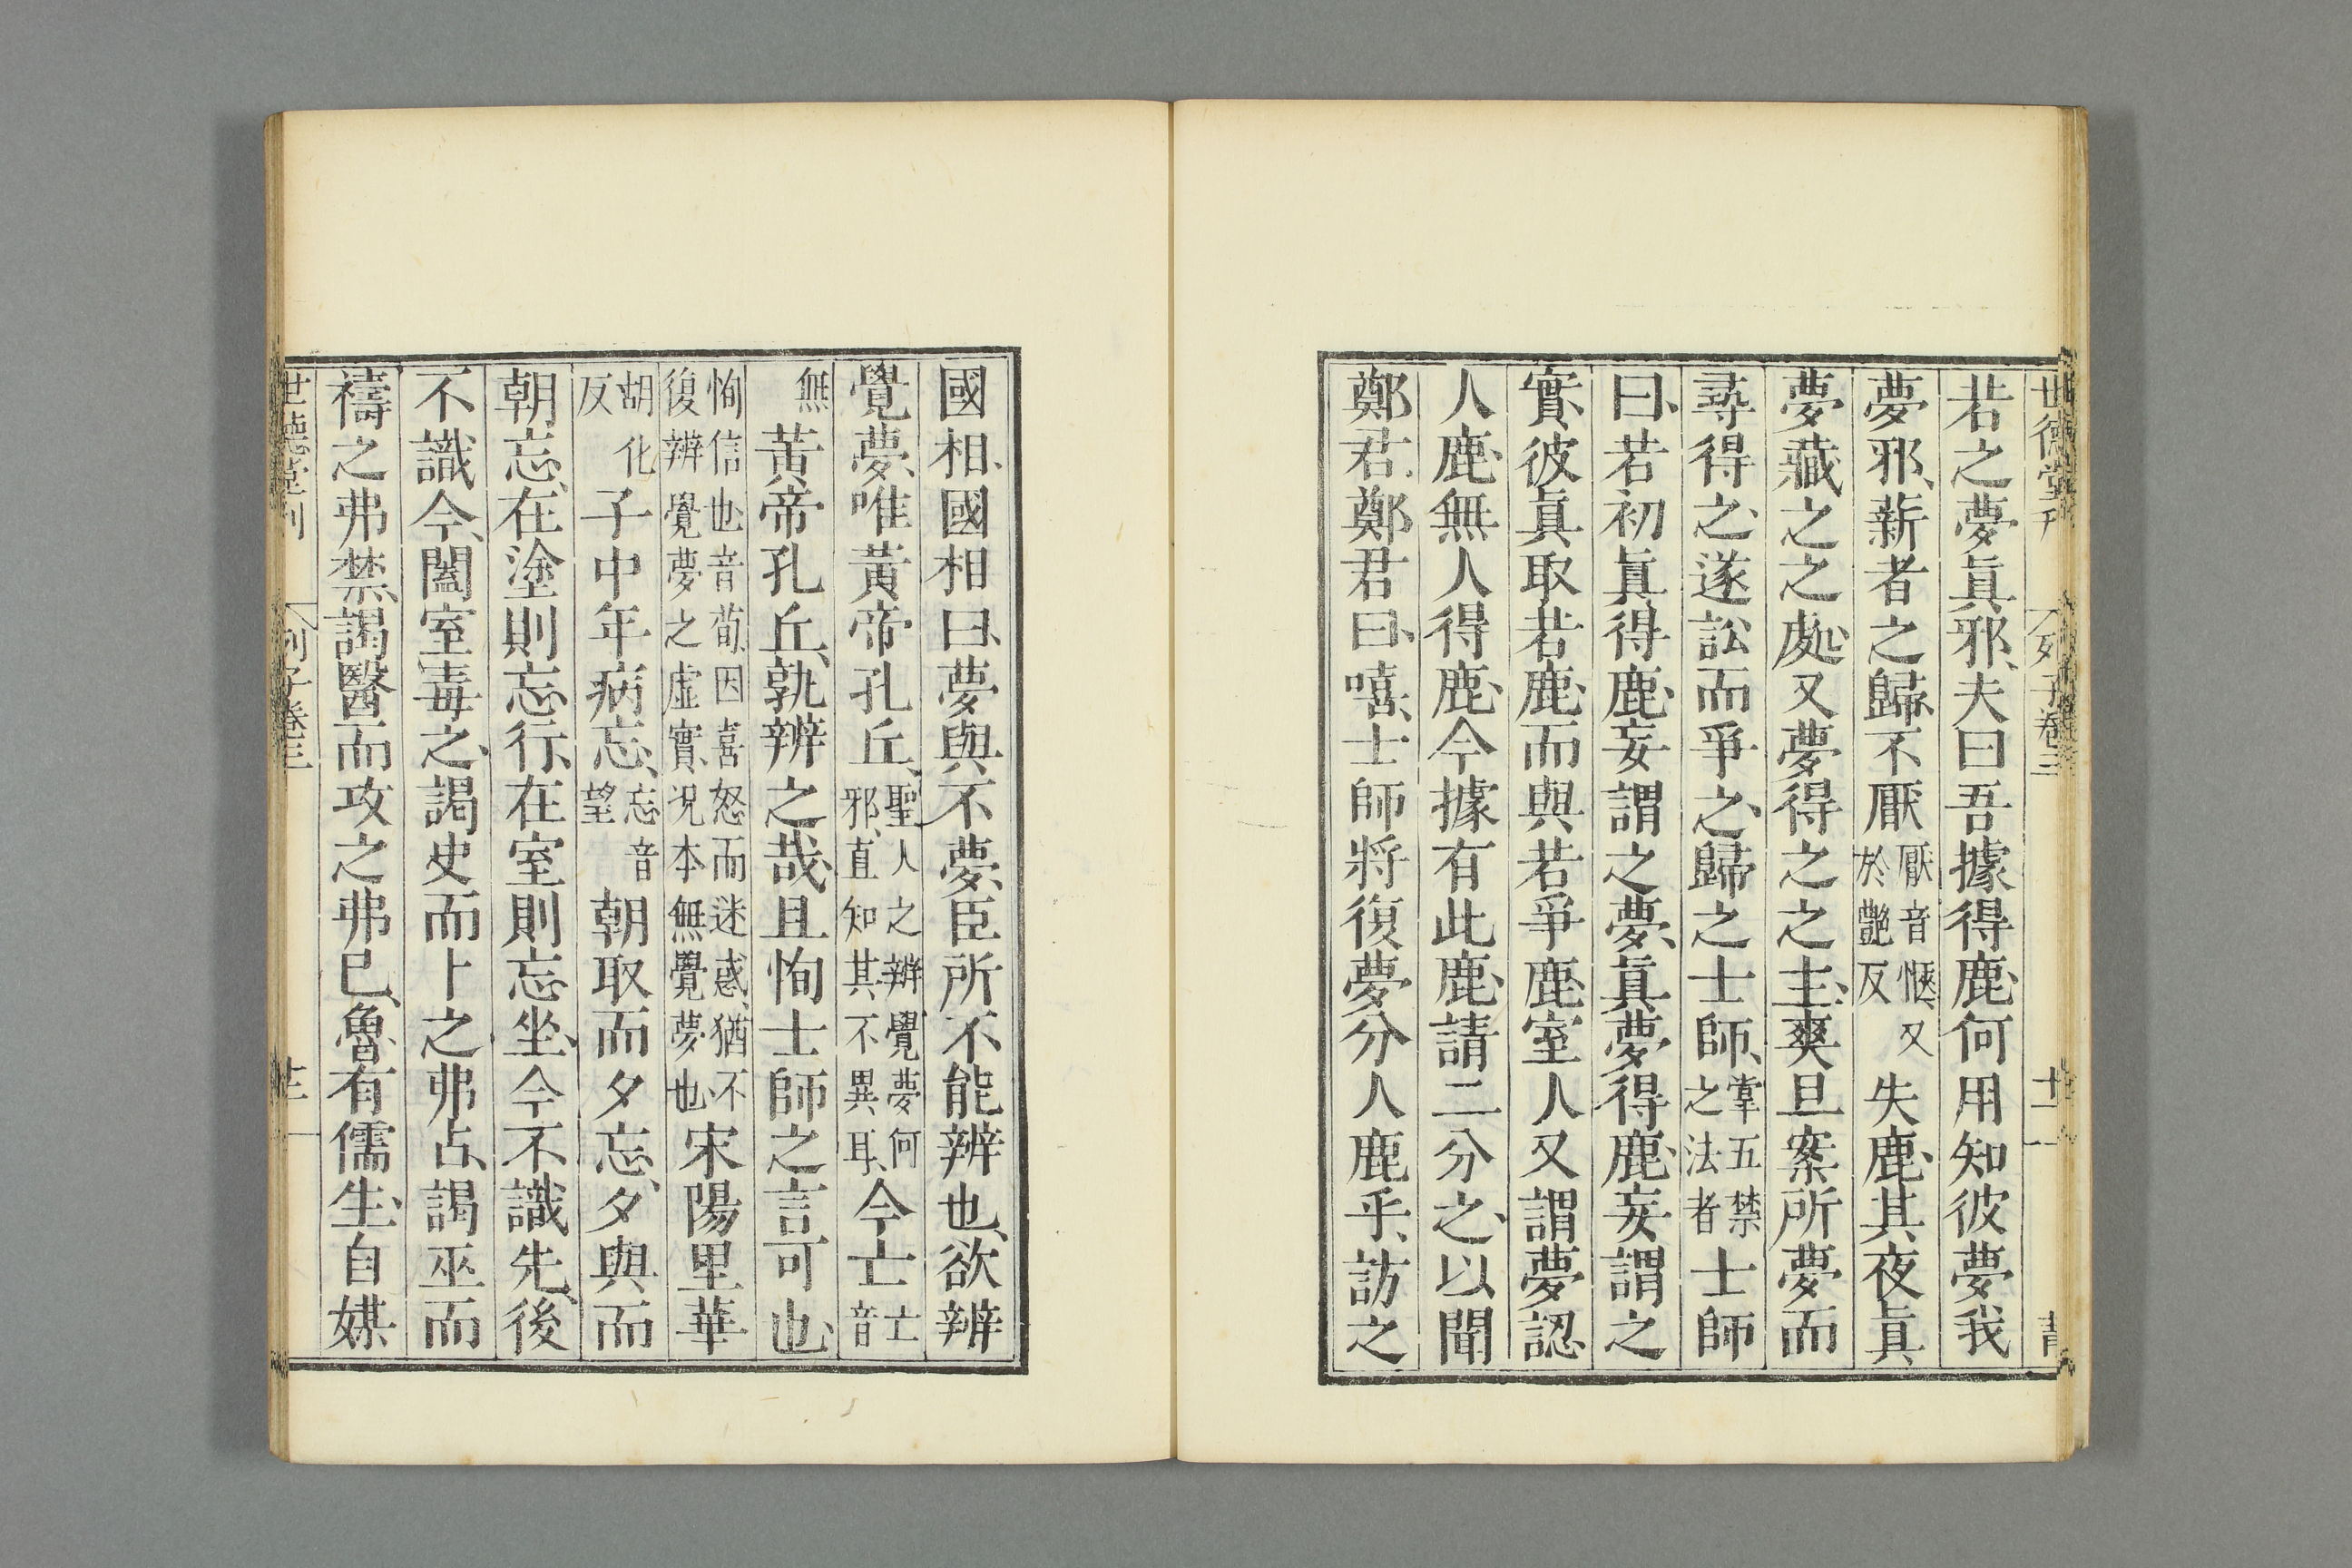 世德堂刊 列子卷三 十二
若之夢眞邪、夫曰吾據得鹿何用知彼夢我
夢邪、薪者之歸、不厭厭音愜又於艷反失鹿、其夜眞
夢藏之之處、又夢得之之主、爽旦案所夢而
尋得之、遂訟而爭之、歸之士師、掌五禁之法者士師
曰、若初眞得鹿、妄謂之夢、眞夢得鹿、妄謂之
實、彼眞取若鹿、而與若爭鹿室人又謂夢認
人鹿、無人得鹿、今據有此鹿、請二分之、以聞
鄭君、鄭君曰、嘻、士師將復夢分人鹿乎、訪之
國相、國相曰、夢與不夢、臣所不能辨也、欲辨
覺夢、唯黃帝孔丘、聖人之辨覺夢何邪、直知其不異耳、今亡亡音
無黃帝孔丘、孰辨之哉、且恂士師之言可也、
恂信也、音荀、因喜怒而迷惑、猶不復辨覺夢之虛實、況本無覺夢也、宋陽里華
胡化反子中年病忘、忘音望朝取而夕忘、夕與而
朝忘、在塗則忘行、在室則忘坐、今不識先、後
不識今、闔室毒之、謁史而卜之、弗占、謁巫而
禱之弗禁、謁醫而攻之弗已、魯有儒生、自媒
世德堂刊 列子卷三